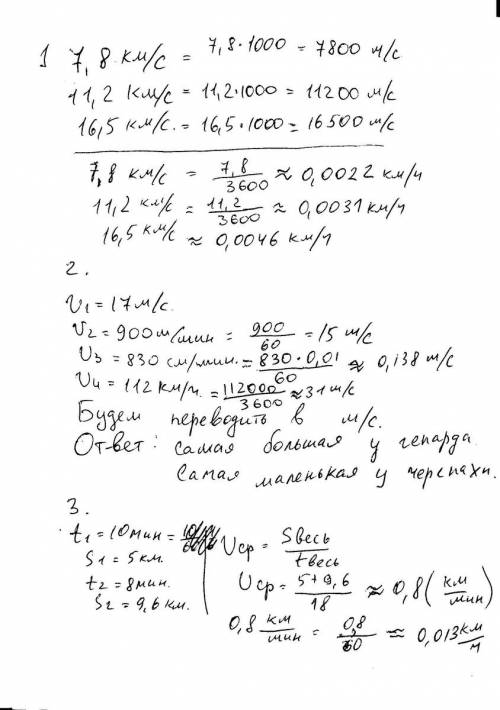 1 7,8 км/с = 7,8·1000 = 7800 м/с
11,2 км/с = 11,2·1000 = 11200 м/с
16,5 км/с. = 16,5·1000 = 16500 м/с
7,8 км/с = 7,8/3600 ≈ 0,0022 км/ч
11,2 км/с = 11,2/3600 ≈ 0,0031 км/ч
16,5 км/с ≈ 0,0046 км/ч
2.
V1 = 17 м/с.
V2 = 900 м/мин = 900/60 = 15 м/с
V3 = 830 см/мин. = 830·0,01/60 ≈ 0,138 м/с
V4 = 112 км/ч. = 112000/3600 ≈ 31 м/с
Будем переводить в м/с.
Ответ: самая большая у гепарда
Самая маленькая у черепахи.
3.
t1 = 10мин =
S1 = 5 км.
t2 = 8мин.
S2 = 9,6 км.
Vср = Sвесь/tвесь
Vср = 5+9,6/18 ≈ 0,8 (км/мин)
0,8 км/мин = 0,8/60 ≈ 0,013 км/ч